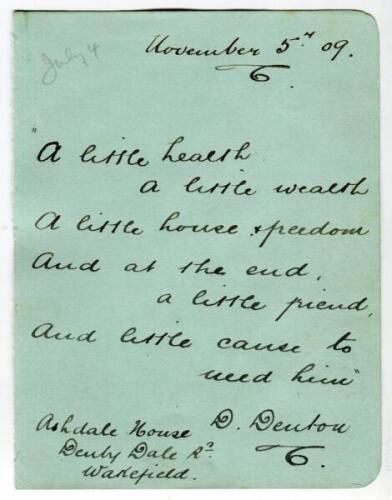 July 4
November 5th 09.
"A little health
a little wealth
A little house & freedom
And at the end,
a little friend,
And little cause to
need him"
Ashdale House D. Denton
Denby Dale Rd.
Wakefield.